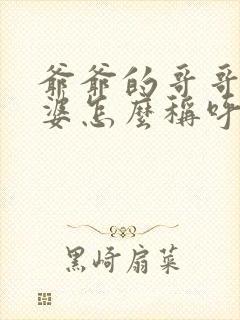 爺爺的哥哥
婆怎麼稱呼
黑崎扇菜